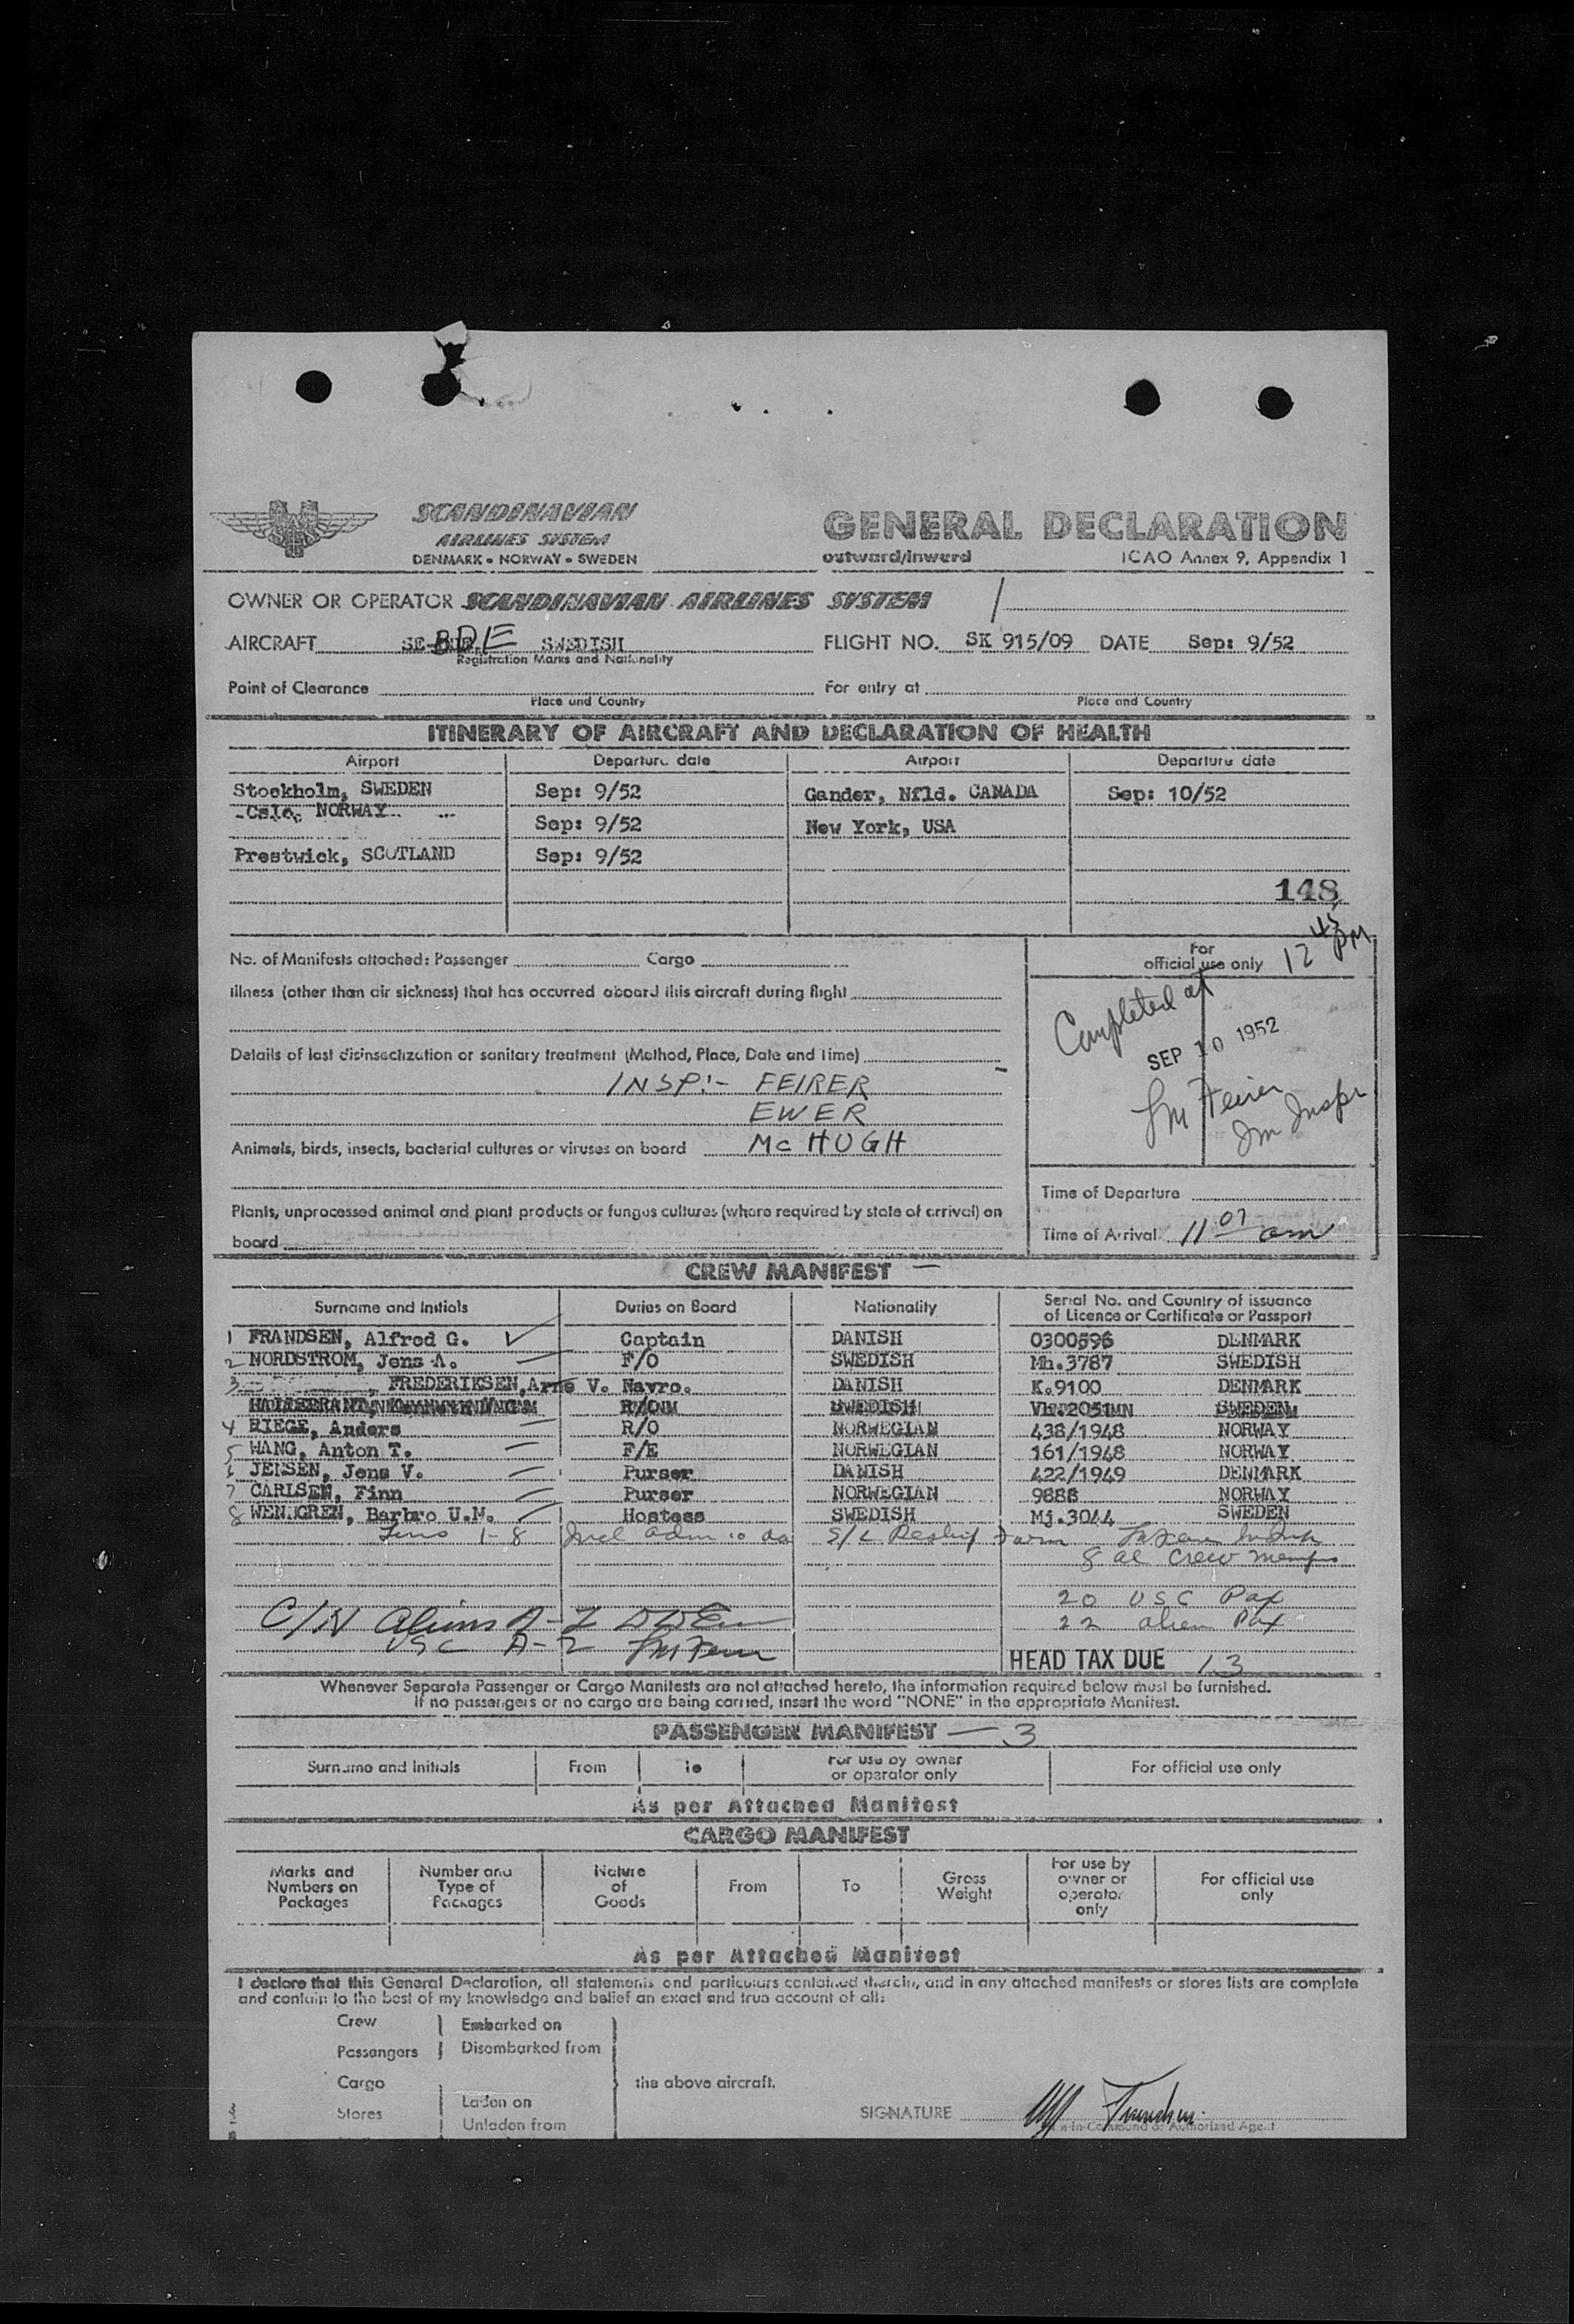 SCANDINAVIAN
AIRLINES SYSTEM
DENMARK • NORWAY • SWEDEN
GENERAL DECLARATION
outward/inward
ICAO Annex 9, Appendix 1
OWNER OR OPERATOR SCANDINAVIAN AIRLINES SYSTEM
AIRCRAFT SE-BDE SWEDISH
Registration Marks and Nationality
FLIGHT NO. SK 915/09 DATE Sep: 9/52
Point of Clearance
Place and Country
For entry at
Place and Country
ITINERARY OF AIRCRAFT AND DECLARATION OF HEALTH
Airport Departure date Airport Departure date
Stockholm, SWEDEN Sep: 9/52 Gander, Nfld. CANADA Sep: 10/52
Oslo, NORWAY Sep: 9/52 New York, USA
Prestwick, SCOTLAND Sep: 9/52
148
No. of Manifests attached: Passenger Cargo
For official use only
12 45 PM
Illness (other than air sickness) that has occurred aboard this aircraft during flight
Completed at
SEP 10 1952
Details of last disinsectization or sanitary treatment (Method, Place, Date and Time)
INSP:- FEIRER
EWER
Animals, birds, insects, bacterial cultures or viruses on board McHUGH
Feirer
Im Inspr
Time of Departure
Plants, unprocessed animal and plant products or fungus cultures (where required by state of arrival) on
board
Time of Arrival 11 07 am
CREW MANIFEST
Surname and Initials Duties on Board Nationality Serial No. and Country of issuance of Licence or Certificate or Passport
1 FRANDSEN, Alfred G. Captain DANISH 0300596 DENMARK
2 NORDSTROM, Jens A. F/O SWEDISH Mh.3787 SWEDISH
3 FREDERIKSEN, Arne V. Navro. DANISH K.9100 DENMARK
4 RIEGE, Anders R/O NORWEGIAN 438/1948 NORWAY
5 WANG, Anton T. F/E NORWEGIAN 161/1948 NORWAY
6 JENSEN, Jens V. Purser DANISH 422/1949 DENMARK
7 CARLSEN, Finn Purser NORWEGIAN 9888 NORWAY
8 WENNGREN, Barbro U.M. Hostess SWEDISH Mj.3044 SWEDEN
Lines 1-8
8 al crew
20 USC Pax
22 alien Pax
C/N Aliens A-2
USC A-2
HEAD TAX DUE 13
Whenever Separate Passenger or Cargo Manifests are not attached hereto, the information required below must be furnished.
If no passengers or no cargo are being carried, insert the word "NONE" in the appropriate Manifest.
PASSENGER MANIFEST — 3
Surname and Initials From To For use by owner or operator only For official use only
As per Attached Manifest
CARGO MANIFEST
Marks and Numbers on Packages Number and Type of Packages Nature of Goods From To Gross Weight For use by owner or operator only For official use only
As per Attached Manifest
I declare that this General Declaration, all statements and particulars contained therein, and in any attached manifests or stores lists are complete
and contain to the best of my knowledge and belief an exact and true account of all:
Crew Embarked on
Passengers Disembarked from
Cargo the above aircraft.
Stores Laden on
Unladen from
SIGNATURE
in-Command or Authorized Agent